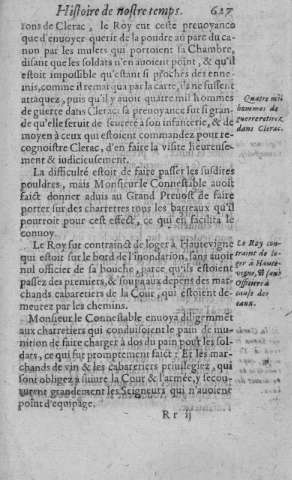 Histoire de nostre temps. 627
rons de Clerac, le Roy eut ceste preuoyance
que d'enuoyer querir de la poudre au parc du ca-
non par les mulets qui portoient sa Chambre,
disant que les soldats n'en auoient point, & qu'il
estoit impossible qu'estant si proches des enne-
mis, comme il remarqua par la carte, ils ne fussent
attaquez, puis qu'il y auoit quatre mil hommes
de guerre dans Clerac: sa preuoyance fut si gran-
de qu'elle seruit de seureté à son infanterie, & de
moyen à ceux qui estoient commandez pour re-
cognoistre Clerac, d'en faire la visite heureuse-
ment & iudicieusement.
Quatre mil
hommes de
guerre retirez
dans Clerac.
La difficulté estoit de faire passer les susdites
pouldres, mais Monsieur le Connestable auoit
faict donner aduis au Grand Preuost de faire
porter sur des charrettes tous les batteaux qu'il
pourroit pour cest effect, ce qui en facilita le
conuoy.
Le Roy fut contrainct de loger à Hautevigne
qui estoit sur le bord de l'inondation, sans auoir
nul officier de sa bouche, parce qu'ils estoient
passez des premiers, & soupa aux depens des mar-
chands cabaretiers de la Cour, qui estoient de-
meurez par les chemins.
Le Roy con-
traint de lo-
ger à Haute-
vigne, & sans
officiers à
cause des
eaux.
Monsieur le Connestable enuoya diligemmẽt
aux charretiers qui conduisoient le pain de mu-
nition de faire charger à dos du pain pour les sol-
dats, ce qui fut promptement faict: Et les mar-
chands de vin & les cabaretiers priuilegiez, qui
sont obligez à suiure la Cour & l'armée, y secou-
rurent grandement les Seigneurs qui n'auoient
point d'equipage.
Rr ij